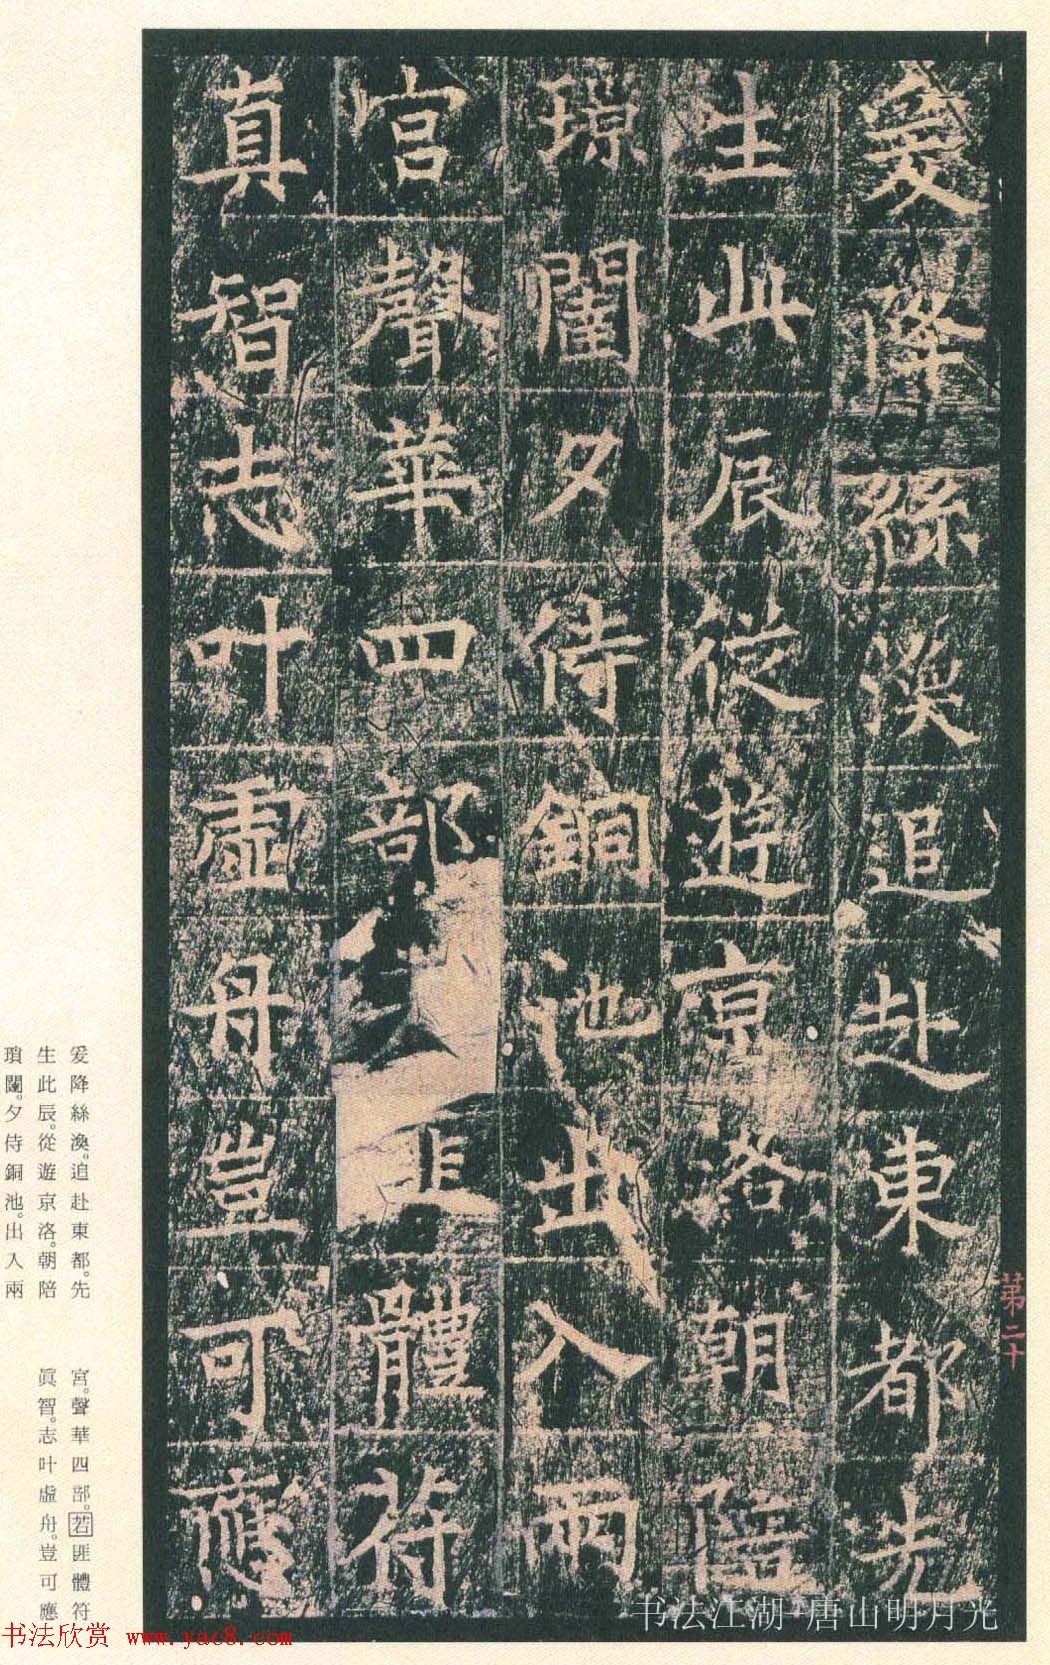 爰降絲渙追赴東都先
生此辰從遊京洛朝陪
瑣闈夕侍銅池出入兩
宮聲華四部匪體符
真智志叶虛舟豈可應
第二十
爰降絲渙。追赴東都。先
生此辰。從遊京洛。朝陪
瑣闥。夕侍銅池。出入兩
宮。聲華四部。若匪體符
眞智。志叶虛舟。豈可應
书法江湖-唐山明月光
书法欣赏 www.yac8.com